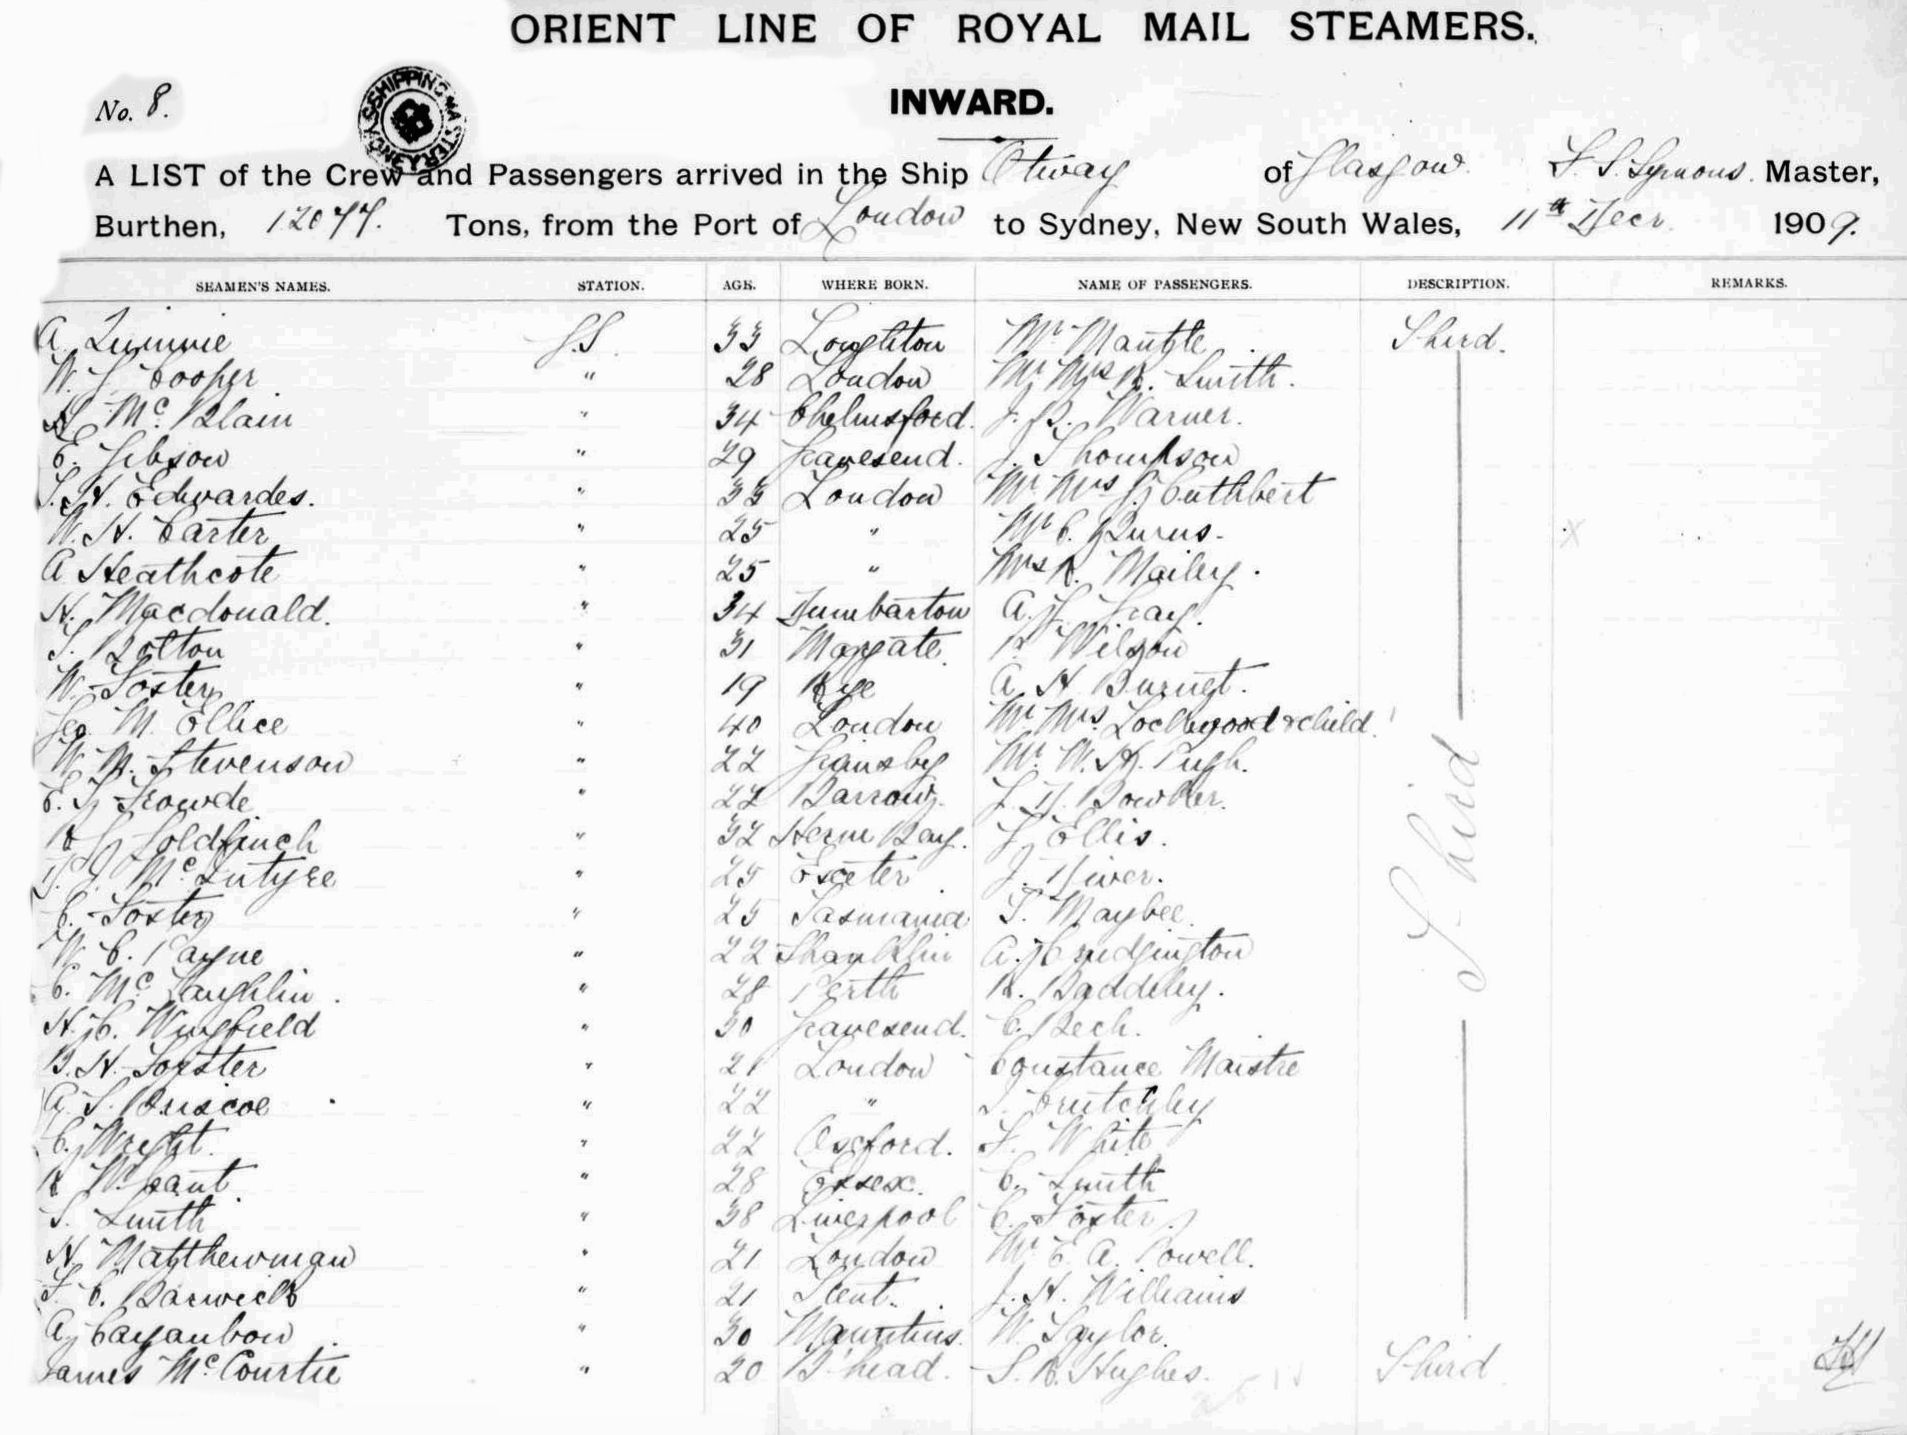 ORIENT LINE OF ROYAL MAIL STEAMERS.
No. 8.
INWARD.
A LIST of the Crew and Passengers arrived in the Ship Otway of Glasgow. Symons. Master,
Burthen, 12077. Tons, from the Port of London to Sydney, New South Wales, 11th Decr. 1909.
SEAMEN'S NAMES. STATION. AGE. WHERE BORN. NAME OF PASSENGERS. DESCRIPTION. REMARKS.
A. 33 Loughton Mr Mantle Third.
W. J. Cooper " 28 London Mr Mrs R. Smith.
Mc Blain " 34 Chelmsford. J. B. Warner.
E. Gibson " 29 Gravesend. J. Thompson
Edwardes. " 33 London Mr Mrs J. Cuthbert
W. H. Carter " 25 " Mr C. Burns.
A Heathcote " 25 " Mrs R. Mailey.
H. Macdonald. " 34 Dumbarton A. Gray.
Bolton " 31 Margate. Wilson
W. Foster " 19 Rye A. H. Burnet.
Geo. M. Ellice " 40 London Mr Mrs Lockwood & child.
W. M. Stevenson " 22 Mr. W. H. Pugh.
E. Frowde " 22 Barrow. Bowker.
Goldfinch " 32 Herne Bay. J. Ellis.
McIntyre " 25 Exeter J. Diver. Third
C. Foster " 25 Tasmania Maybee.
W. C. Payne " 22 Shanklin A.
C. McLaughlin. " 28 Perth R. Baddeley.
H. C. Wingfield " 30 Gravesend. C. Bech.
B. H. Forster " 21 London Constance Maistre
A. S. Briscoe " 22 " Crutchley
C. Wright. " 22 Oxford. F. White
" 28 Essex. C. Smith
S. Smith " 38 Liverpool C. Foster
H. Matthewman " 21 London Mr E. A. Powell.
F. C. Barwick " 21 J. H. Williams
A. " 30 Mauritius. W. Taylor.
James McCourtie " 20 B'head. Hughes. Third